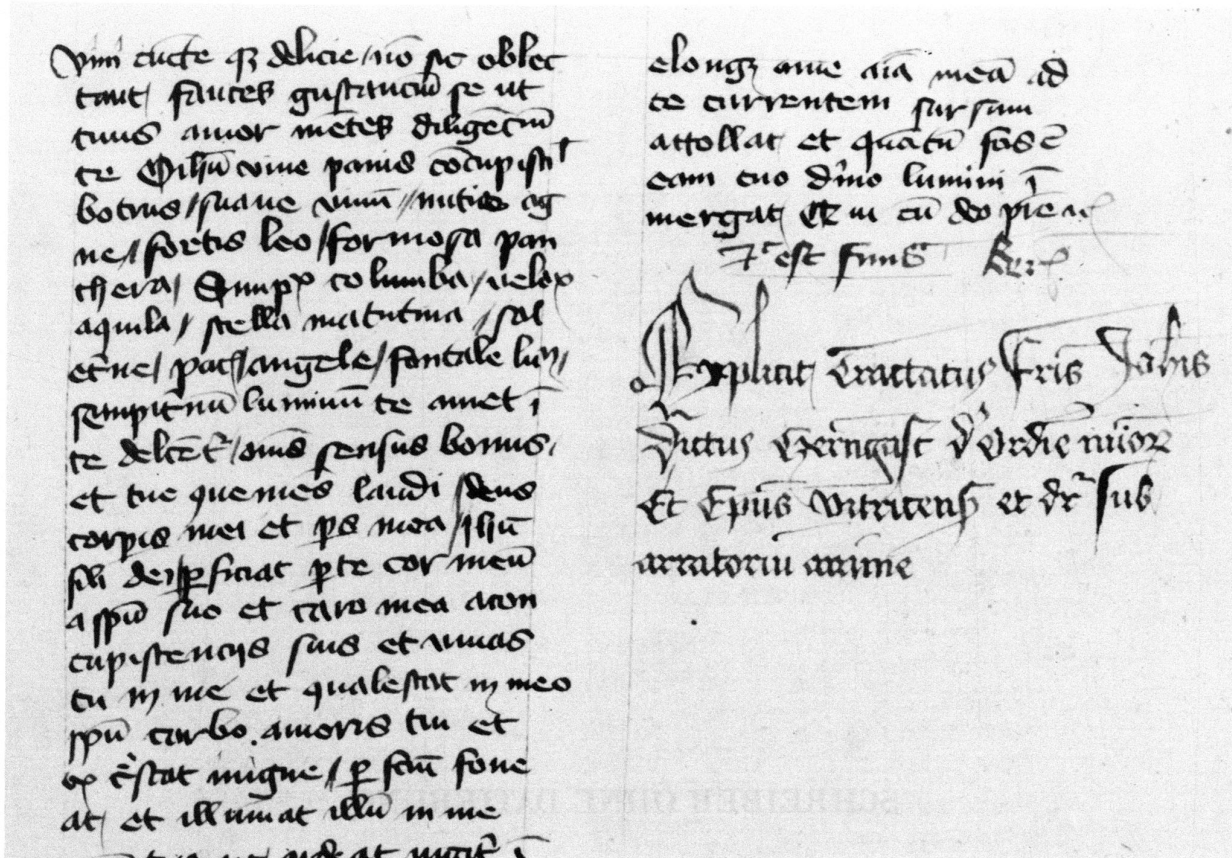 vini cūcte qȝ delicie / nō sic oblec
tant fauces gustanciū se ut
tuus amor mētes diligēciū
te O ihū viue panis cōcupiscīl
botrus / suaue vinū // mitis ag
ne // fortis leo / formosa pan
thera / Simpͯ columba / velox
aquila // stella matutina // sol
et̄ne / pac̄ / angele / fontale lum̄ /
sempit̄nū luminū te amet ī
te delcēt̄ / om̄s sensus bonus /
et tue laudi / deus
corpis mei et ps mea / ihū
fili dei / ꝑficiat ꝑ te cor meū
a spū suo et caro mea acon
cupiscencijs suis et viuas
tu in me et qualescat in meo
spū carbo amoris tui et
igne / ꝑ foue
at et illumīat illū in me
elongȝ aīaȝ meā ad
te currentem sursum
attollat et quātū fas ē
eam tuo dīno lumini ī
mergat Q̄ tu cū deo pīe ac̄
est finis
Explicit Tractatus Fr̄is Joh̄is
Dictus Gerngast d' Ordīe mīoꝝ
Et Ep̄us et dr̄ sub
arratoriū anime
SCHREIBER OHNE